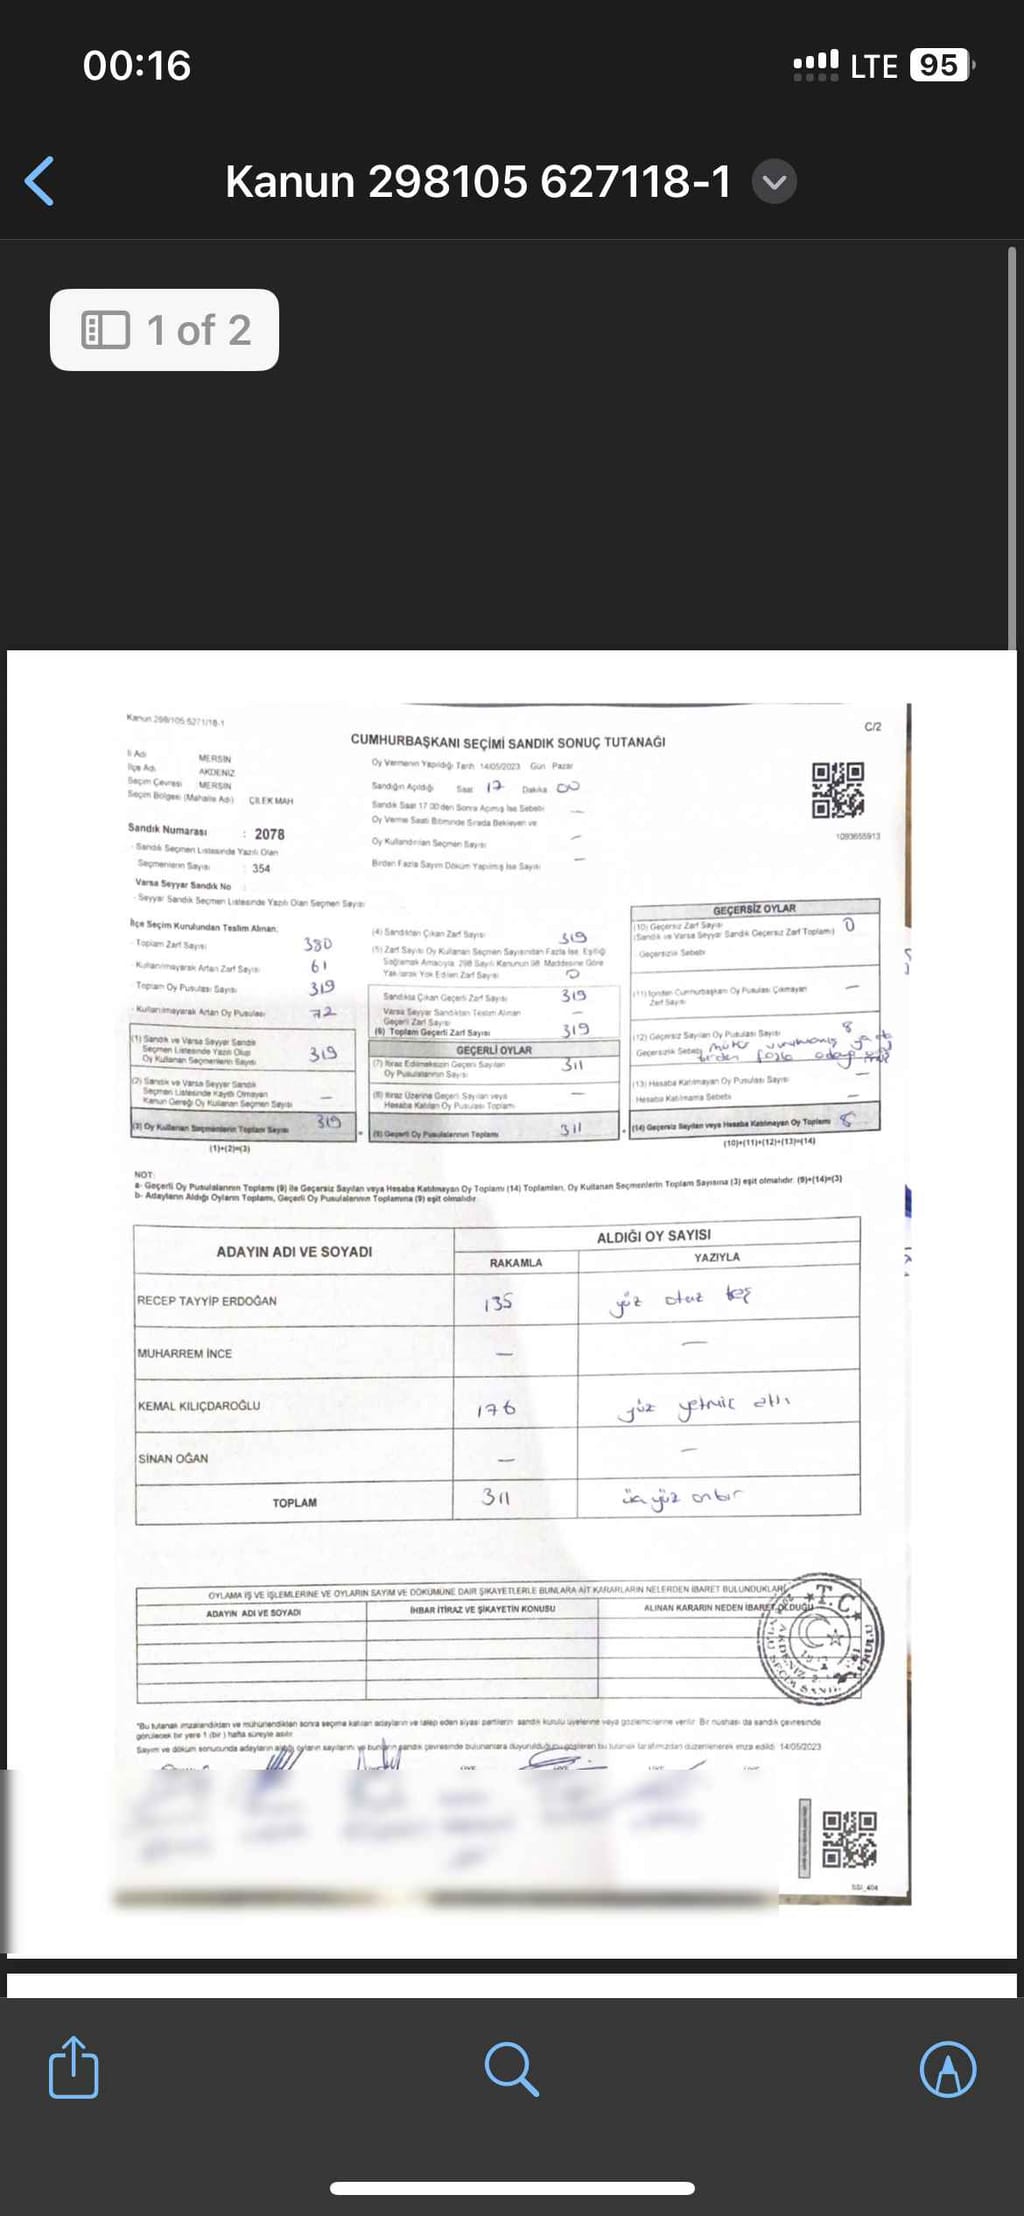 00:16
LTE 95
Kanun 298105 627118-1
1 of 2
Kanun 298/105 627118-1
C/2
CUMHURBAŞKANI SEÇİMİ SANDIK SONUÇ TUTANAĞI
İl Adı MERSİN
İlçe Adı AKDENİZ
Seçim Çevresi MERSİN
Seçim Bölgesi (Mahalle Adı) ÇİLEK MAH
Sandık Numarası : 2078
- Sandık Seçmen Listesinde Yazılı Olan
Seçmenlerin Sayısı : 354
Varsa Seyyar Sandık No
- Seyyar Sandık Seçmen Listesinde Yazılı Olan Seçmen Sayısı
Oy Vermenin Yapıldığı Tarih 14/05/2023 Gün Pazar
Sandığın Açıldığı Saat 17 Dakika 00
Sandık Saat 17 00'den Sonra Açılmış İse Sebebi —
Oy Verme Saati Bitiminde Sırada Bekleyen ve
Oy Kullandırılan Seçmen Sayısı —
Birden Fazla Sayım Döküm Yapılmış İse Sayısı —
1093655913
İlçe Seçim Kurulundan Teslim Alınan:
- Toplam Zarf Sayısı 380
- Kullanılmayarak Artan Zarf Sayısı 61
- Toplam Oy Pusulası Sayısı 319
- Kullanılmayarak Artan Oy Pusulası 72
(1) Sandık ve Varsa Seyyar Sandık
Seçmen Listesinde Yazılı Olup
Oy Kullanan Seçmenlerin Sayısı 319
(2) Sandık ve Varsa Seyyar Sandık
Seçmen Listesinde Kayıtlı Olmayan
Kanun Gereği Oy Kullanan Seçmen Sayısı —
(3) Oy Kullanan Seçmenlerin Toplam Sayısı 319
(1)+(2)=(3)
(4) Sandıktan Çıkan Zarf Sayısı 319
(5) Zarf Sayısı Oy Kullanan Seçmen Sayısından Fazla İse, Eşitliği
Sağlamak Amacıyla 298 Sayılı Kanunun 98. Maddesine Göre
Yakılarak Yok Edilen Zarf Sayısı 0
Sandıkta Çıkan Geçerli Zarf Sayısı 319
Varsa Seyyar Sandıktan Teslim Alınan
Geçerli Zarf Sayısı —
(6) Toplam Geçerli Zarf Sayısı 319
GEÇERLİ OYLAR
(7) İtiraz Edilmeksizin Geçerli Sayılan
Oy Pusulalarının Sayısı 311
(8) İtiraz Üzerine Geçerli Sayılan veya
Hesaba Katılan Oy Pusulası Toplamı —
(9) Geçerli Oy Pusulalarının Toplamı 311
GEÇERSİZ OYLAR
(10) Geçersiz Zarf Sayısı 0
(Sandık ve Varsa Seyyar Sandık Geçersiz Zarf Toplamı)
Geçersizlik Sebebi
(11) İçinden Cumhurbaşkanı Oy Pusulası Çıkmayan
Zarf Sayısı —
(12) Geçersiz Sayılan Oy Pusulası Sayısı 8
Geçersizlik Sebebi mühür vurulmamış ya da
birden fazla adaya
(13) Hesaba Katılmayan Oy Pusulası Sayısı —
Hesaba Katılmama Sebebi —
(14) Geçersiz Sayılan veya Hesaba Katılmayan Oy Toplamı 8
(10)+(11)+(12)+(13)=(14)
NOT:
a- Geçerli Oy Pusulalarının Toplamı (9) ile Geçersiz Sayılan veya Hesaba Katılmayan Oy Toplamı (14) Toplamları, Oy Kullanan Seçmenlerin Toplam Sayısına (3) eşit olmalıdır. (9)+(14)=(3)
b- Adayların Aldığı Oyların Toplamı, Geçerli Oy Pusulalarının Toplamına (9) eşit olmalıdır
ADAYIN ADI VE SOYADI
ALDIĞI OY SAYISI
RAKAMLA YAZIYLA
RECEP TAYYİP ERDOĞAN 135 yüz otuz beş
MUHARREM İNCE — —
KEMAL KILIÇDAROĞLU 176 yüz yetmiş altı
SİNAN OĞAN — —
TOPLAM 311 üç yüz onbir
OYLAMA İŞ VE İŞLEMLERİNE VE OYLARIN SAYIM VE DÖKÜMÜNE DAİR ŞİKAYETLERLE BUNLARA AİT KARARLARIN NELERDEN İBARET BULUNDUKLARI
ADAYIN ADI VE SOYADI İHBAR İTİRAZ VE ŞİKAYETİN KONUSU ALINAN KARARIN NEDEN İBARET OLDUĞU
T.C.
AKDENİZ
*Bu tutanak imzalandıktan ve mühürlendikten sonra seçime katılan adayların ve talep eden siyasi partilerin sandık kurulu üyelerine veya gözlemcilerine verilir. Bir nüshası da sandık çevresinde
görülecek bir yere 1 (bir) hafta süreyle asılır.
Sayım ve döküm sonucunda adayların aldığı oyların sayılarını ve bunların sandık çevresinde bulunanlara duyurulduğunu gösteren bu tutanak tarafımızdan düzenlenerek imza edildi. 14/05/2023